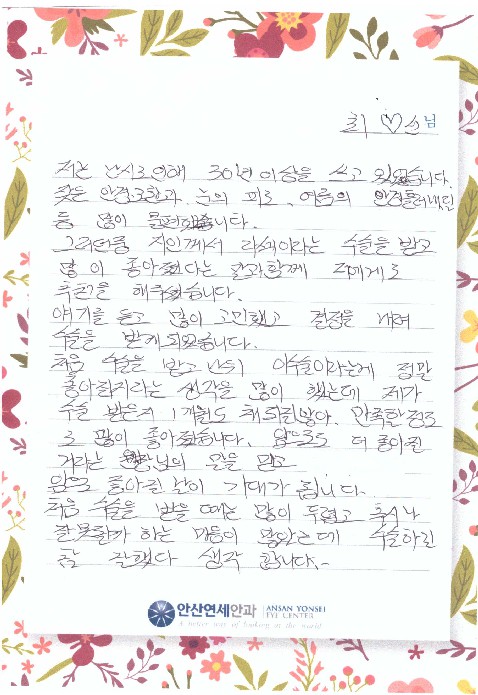 최 ♡ 쓰님
저는 난시로 인해 30년 이상을 쓰고 있었습니다.
잦은 안경교환과 눈의 피로, 여름의 안경흘러내림
등 많이 불편했습니다.
그러던중 지인께서 라섹이라는 수술을 받고
많이 좋아졌다는 말과함께 저에게도
추천을 해주셨습니다.
얘기를 듣고 많이 고민했고 결정을 내려
수술을 받게 되었습니다.
처음 수술을 받고 나의 이수술이라는게 정말
좋아질지라는 생각을 많이 했는데 제가
수술 받은지 1개월도 채 되질않아, 만족할정도
로 많이 좋아졌습니다. 앞으로도 더 좋아진
거라는 원장님의 말을 믿고
앞으로 좋아진 날이 기대가 됩니다.
처음 수술을 받을 때는 많이 두렵고 혹시나
잘못될까 하는 마음이 많았는데 수술하길
참 잘했다 생각 합니다.
안산연세안과 ANSAN YONSEI EYE CENTER
A better way of looking at the world